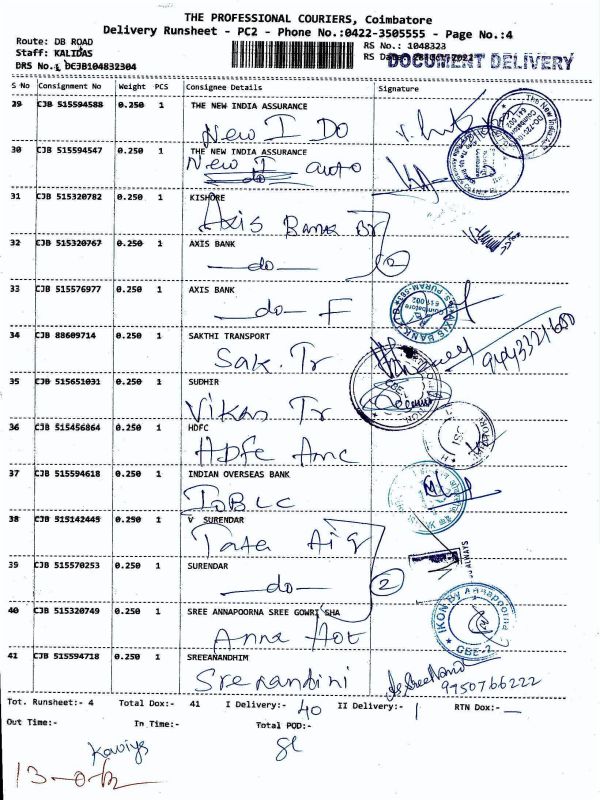 THE PROFESSIONAL COURIERS, Coimbatore
Delivery Runsheet - PC2 - Phone No.:0422-3505555 - Page No.:4
Route: DB ROAD
RS No.: 1048323
Staff: KALIDAS
RS Da
DOCUMENT DELIVERY
DRS No.: DCJB104832304
S No Consignment No Weight PCS Consignee Details Signature
29 CJB 515594588 0.250 1 THE NEW INDIA ASSURANCE
New I DO
30 CJB 515594547 0.250 1 THE NEW INDIA ASSURANCE
New I auto
do
31 CJB 515320782 0.250 1 KISHORE
Axis Bank Br
32 CJB 515320767 0.250 1 AXIS BANK
—do— 2
33 CJB 515576977 0.250 1 AXIS BANK
—do— F
AXIS BANK
34 CJB 88609714 0.250 1 SAKTHI TRANSPORT
Sak. Tr
35 CJB 515651031 0.250 1 SUDHIR
Vikas Tr
36 CJB 515456864 0.250 1 HDFC
HDFC Amc
37 CJB 515594618 0.250 1 INDIAN OVERSEAS BANK
IOB LC
38 CJB 515142445 0.250 1 V SURENDAR
Tata Aig
39 CJB 515570253 0.250 1 SURENDAR
—do— 2
40 CJB 515320749 0.250 1 SREE ANNAPOORNA SREE GOWRI SHA
Anna Hot
IKON By Annapoorna
CBE-2
41 CJB 515594718 0.250 1 SREEANANDHIM
Srenandini
9750766222
Tot. Runsheet:- 4 Total Dox:- 41 I Delivery:- 40 II Delivery:- 1 RTN Dox:- —
Out Time:- In Time:- Total POD:-
Kaviya